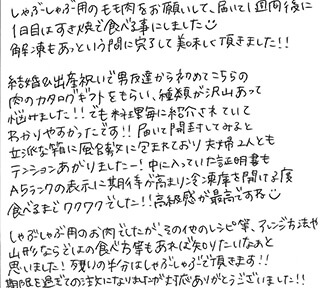 しゃぶしゃぶ用のもも肉をお願いして、届いて1週間後に
1日目はすき焼で食べる事にしました
解凍もあっという間に完了して美味しく頂きました!!
結婚&出産祝いで男友達から初めてこちらの
肉のカタログギフトをもらい、種類が沢山あって
悩みました!!でも料理毎に紹介されていて
わかりやすかったです!!届いて開封してみると
立派な箱に風呂敷に包まれており夫婦2人とも
テンションあがりましたー!中に入っていた証明書も
A5ランクの表示に期待が高まり冷凍庫を開ける度
食べるまでワクワクでした!!高級感が最高ですね
しゃぶしゃぶ用のお肉でしたが、その他のレシピ等、アレンジ方法や
山形ならではの食べ方等もあれば知りたいなぁと
思いました!残りの半分はしゃぶしゃぶで頂きます!!
期限を過ぎての注文になりましたがまだありがとうございました!!